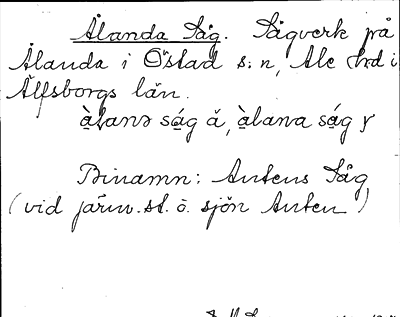 Ålanda Såg. Sågverk på
Ålanda i Östad s:n, Ale hd i
Älfsborgs län.
àlanə ság ä, àlana ság
Binamn: Antens Såg
(vid järnv.st. o. sjön Anten)